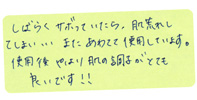 しばらくサボっていたら、肌荒れし
てしまい… またあわてて使用しています。
使用後やはり肌の調子がとても
良いです!!